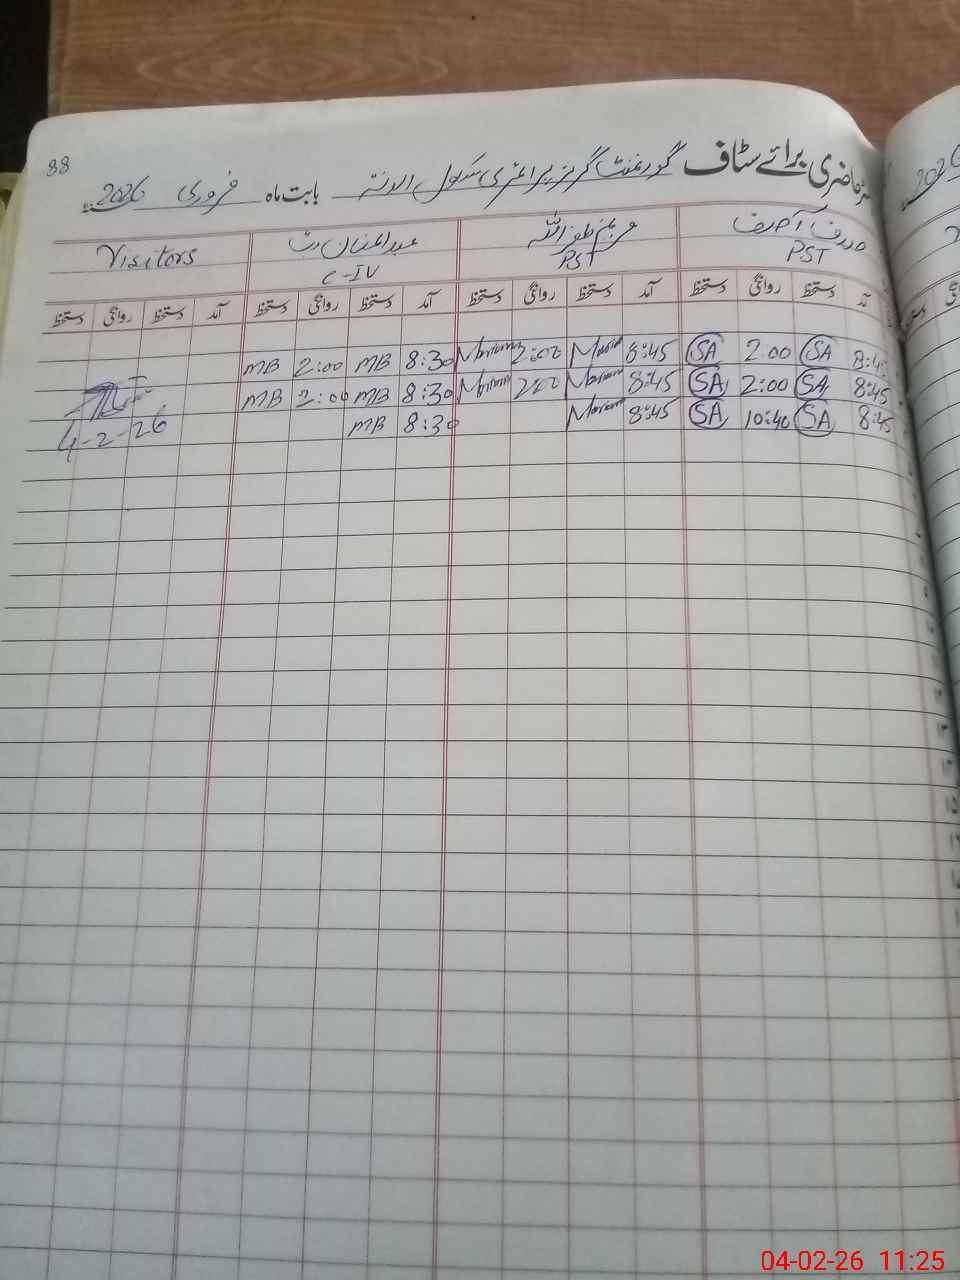 88
حاضری برائے سٹاف گورنمنٹ گرلز پرائمری سکول بابت ماہ فروری 2026
صدف آصف مریم ظفراللہ عبدالمنان بٹ Visitors
PST PST C-IV
آمد دستخط روانگی دستخط آمد دستخط روانگی دستخط آمد دستخط روانگی دستخط آمد دستخط روانگی دستخط
8:45 SA 2:00 SA 8:45 Mariam 2:00 Mariam 8:30 MB 2:00 MB
8:45 SA 2:00 SA 8:45 Mariam 2:00 Mariam 8:30 MB 2:00 MB
8:45 SA 10:40 SA 8:45 Mariam 8:30 MB 4-2-26
04-02-26 11:25